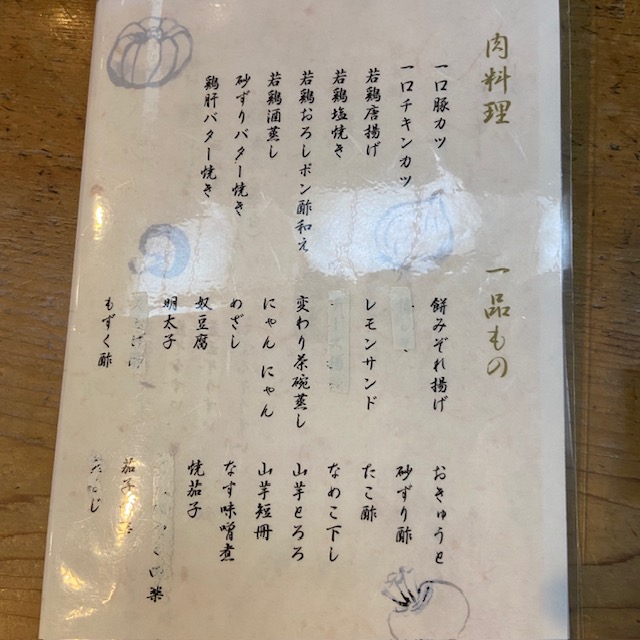 肉料理
一口豚カツ
一口チキンカツ
若鶏唐揚げ
若鶏塩焼き
若鶏おろしポン酢和え
若鶏酒蒸し
砂ずりバター焼き
鶏肝バター焼き
一品もの
餅みぞれ揚げ
レモンサンド
変わり茶碗蒸し
にゃんにゃん
めざし
奴豆腐
明太子
もずく酢
おきゅうと
砂ずり酢
たこ酢
なめこ下し
山芋とろろ
山芋短冊
なす味噌煮
焼茄子
茄子